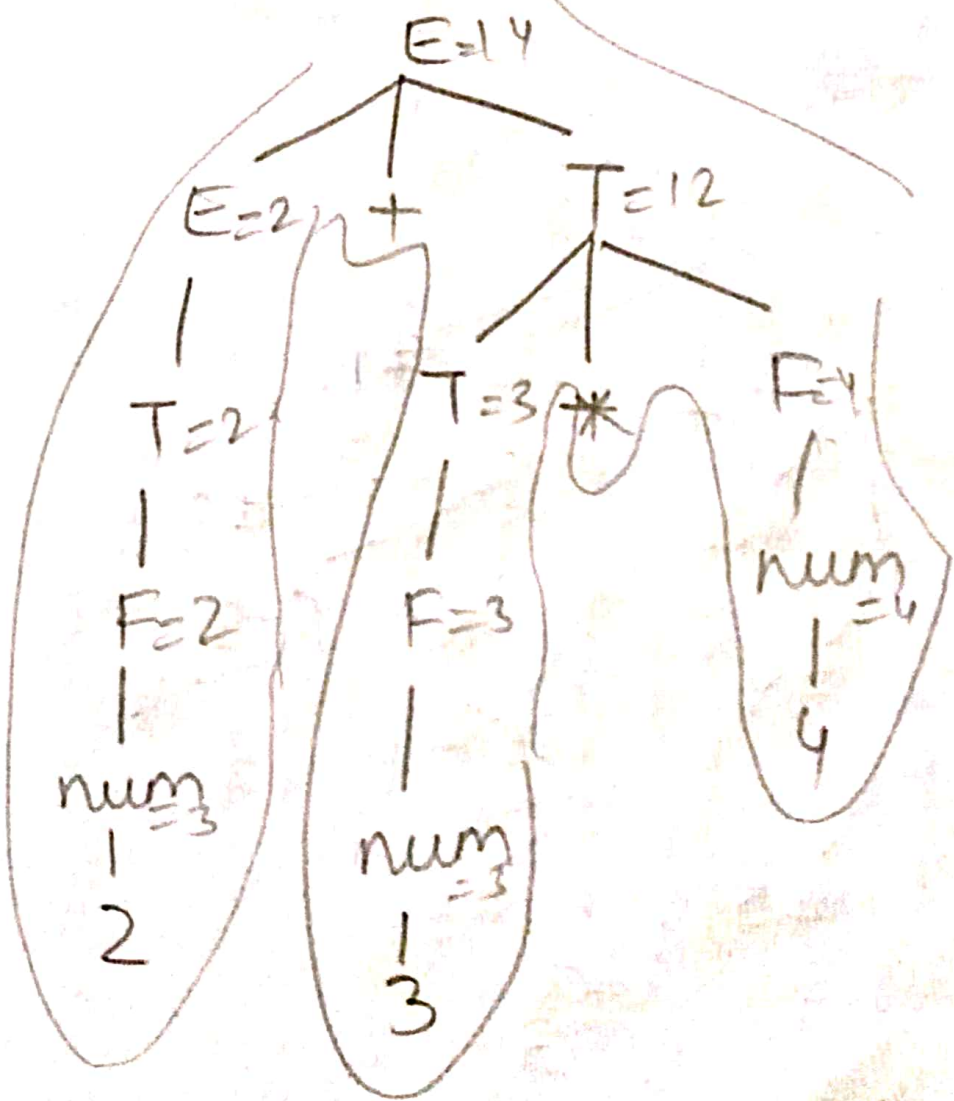 E=14
E=2 + T=12
T=2 T=3 * F=4
F=2 F=3 num=4
num=3 num=3 4
2 3